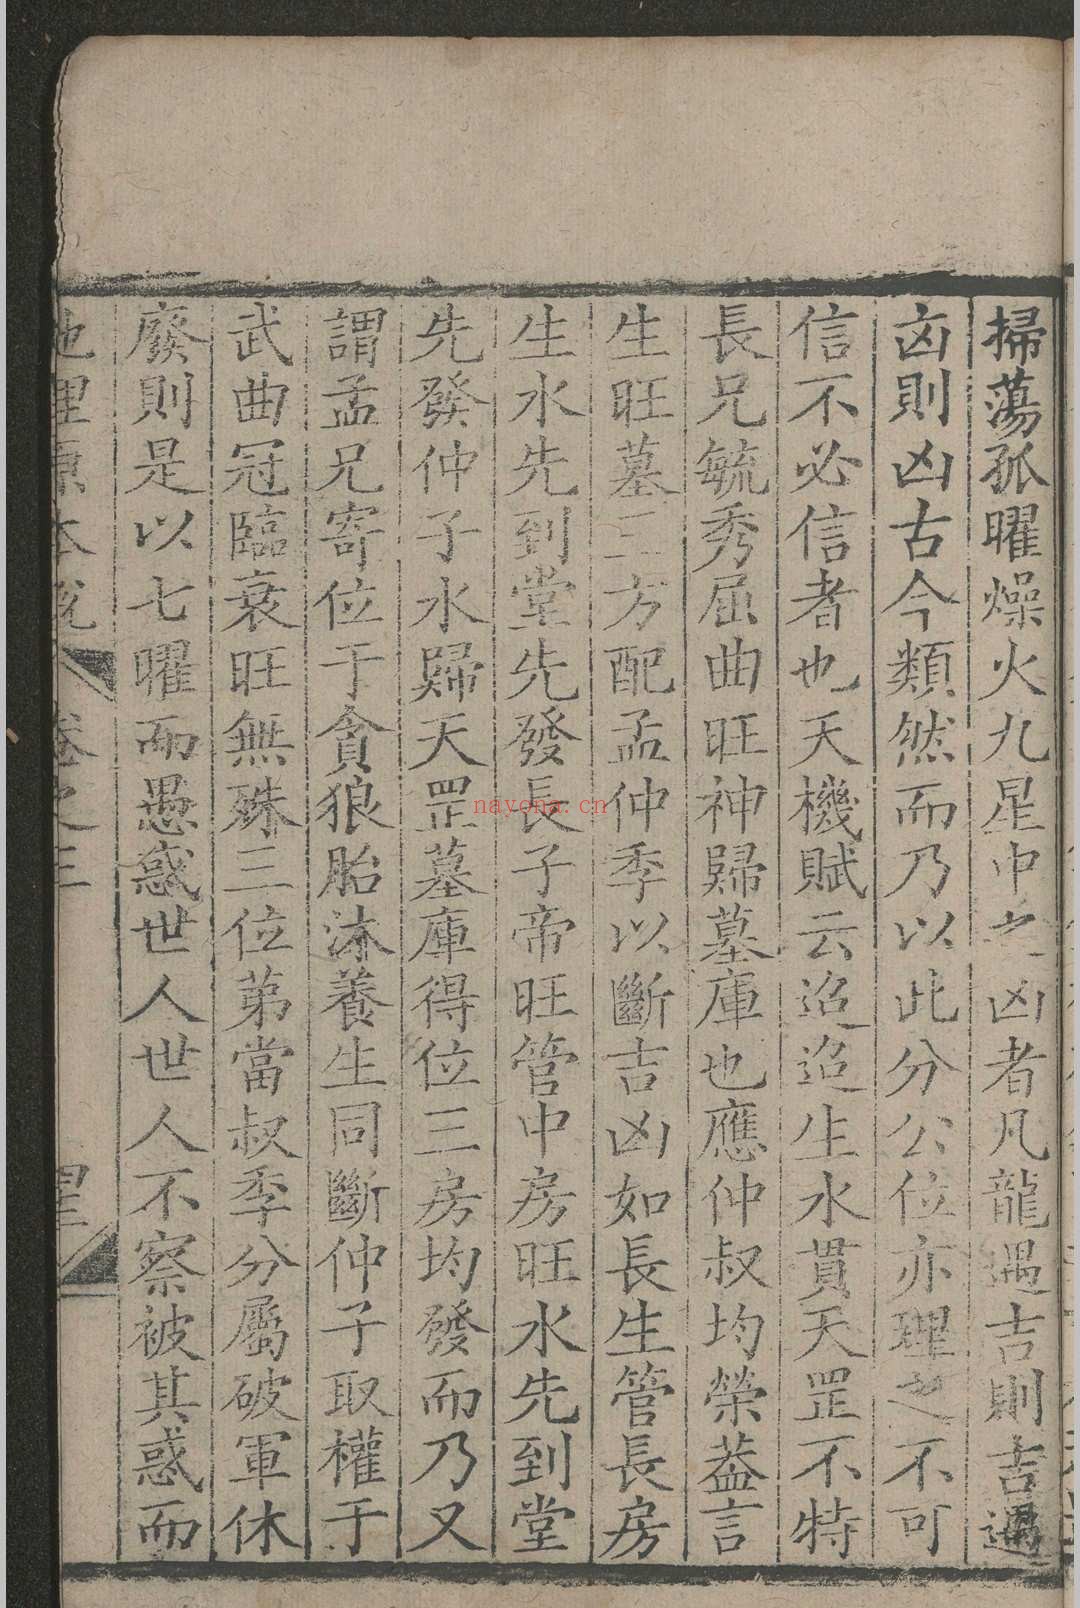 掃蕩孤曜燥火九星中之凶者凡龍遇吉則吉遇
凶則凶古今類然而乃以此分公位亦理之不可
信不必信者也天機賦云迢迢生水貫天罡不特
長兄毓秀屈曲旺神歸墓庫也應仲叔均榮葢言
生旺墓三方配孟仲季以斷吉凶如長生管長房
生水先到堂先發長子帝旺管中房旺水先到堂
先發仲子水歸天罡墓庫得位三房均發而乃又
謂孟兄寄位于貪狼胎沐養生同斷仲子取權于
武曲冠臨衰旺無殊三位苐當叔季分屬破軍休
廢則是以七曜而愚惑世人世人不察被其惑而
地理原本說 卷之三
nayona.cn